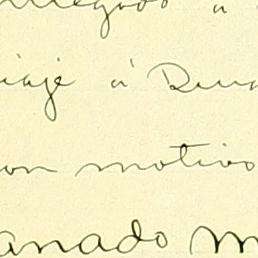 llegado a
iaje á Rus
on motivo
anado m